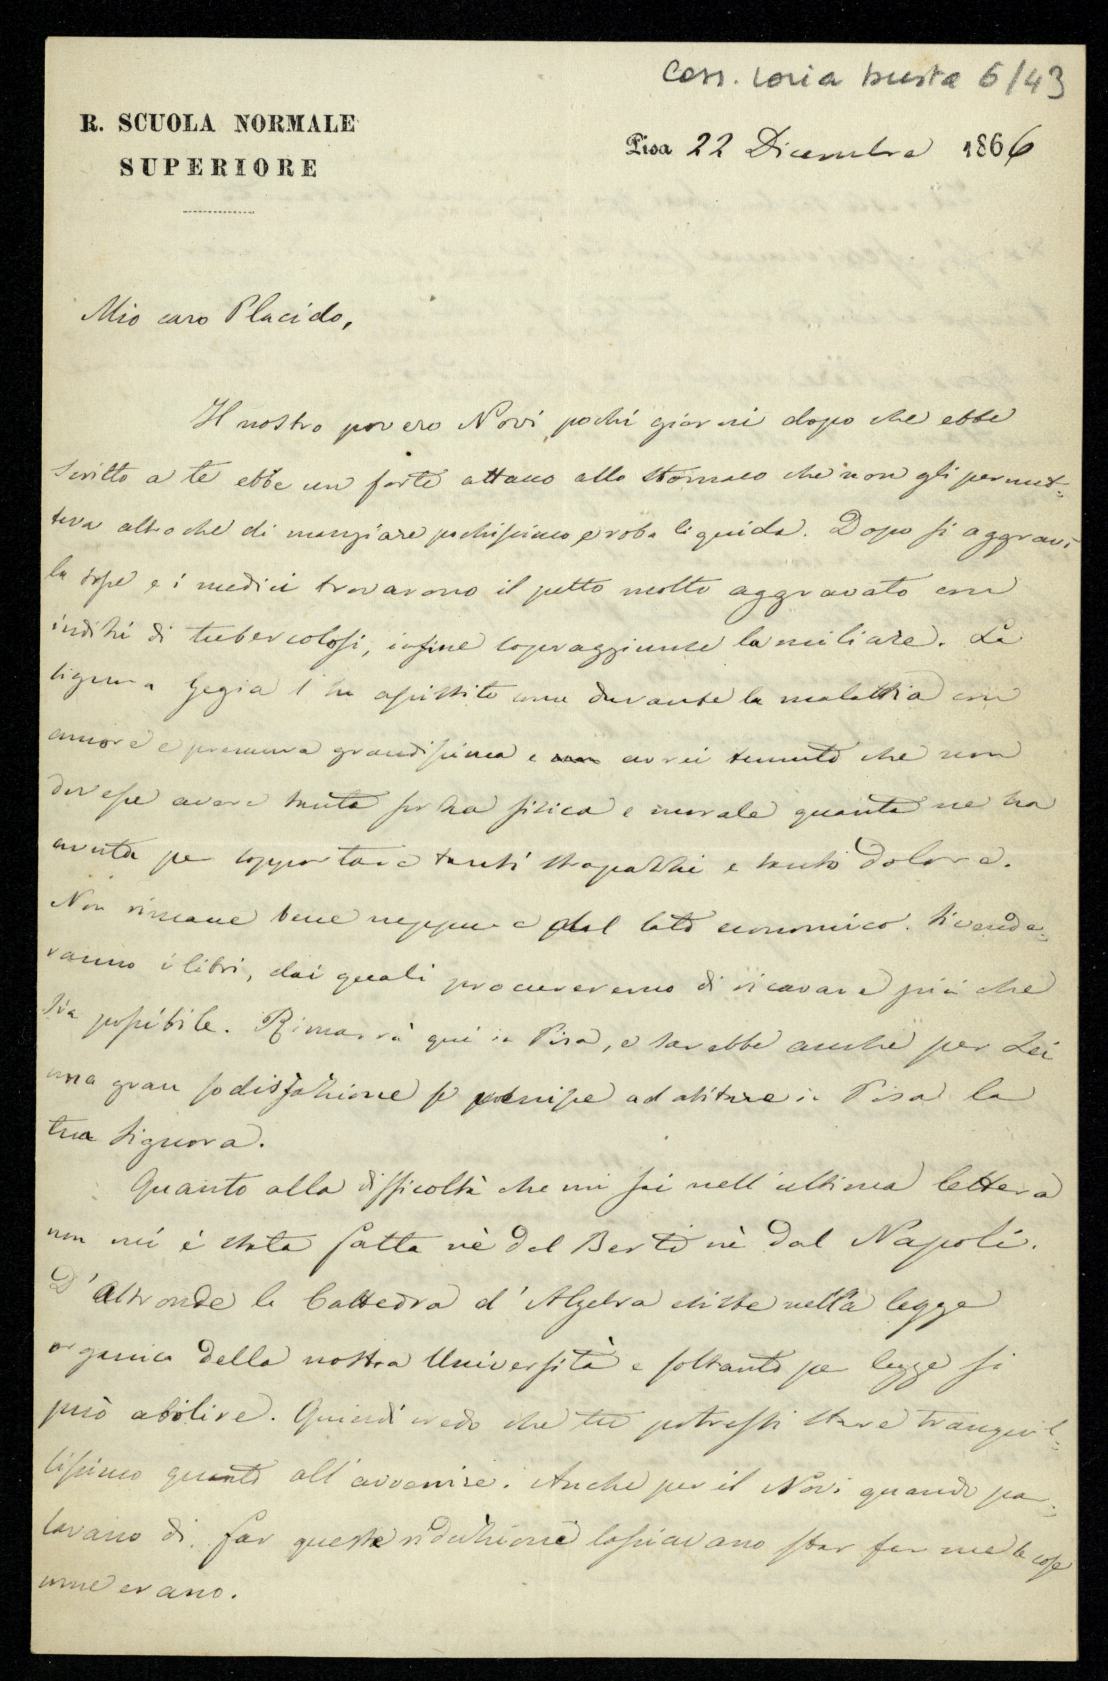 Corr. Loria busta 6/43
R. SCUOLA NORMALE
SUPERIORE
Pisa 22 Dicembre 1866
Mio caro Placido,
Il nostro povero Novi, pochi giorni dopo che ebbe
scritto a te ebbe un forte attacco allo stomaco che non gli permet=
teva altro che di mangiare pochissimo e roba liquida. Dopo si aggravò
la tosse e i medici trovarono il petto molto aggravato con
indizi di tubercolosi, infine sopraggiunse la miliare. La
signora Gegia l'ha assistito durante la malattia con
amore e premura grandissima e avrei temuto che non
dovesse avere tanta forza fisica e morale quanta ne ha
avuta per sopportare tanti strapazzi e tanto dolore.
Non rimane bene neppure dal lato economico. Si vende=
ranno i libri, dai quali procureremo di ricavare più che
sia possibile. Rimarrà qui in Pisa, e sarebbe anche per Lei
una gran sodisfazione se venisse ad abitare in Pisa la
tua Signora.
Quanto alla difficoltà che mi fai nell'ultima lettera
non mi è stata fatta nè dal Berti nè dal Napoli.
D'altronde la Cattedra d'Algebra esiste nella legge
organica della nostra Università e soltanto per legge si
può abolire. Quindi credo che tu potresti stare tranquil=
lissimo quanto all'avvenire. Anche per il Novi quando par=
lavano di far queste riduzioni lasciavano star ferme le cose
come erano.